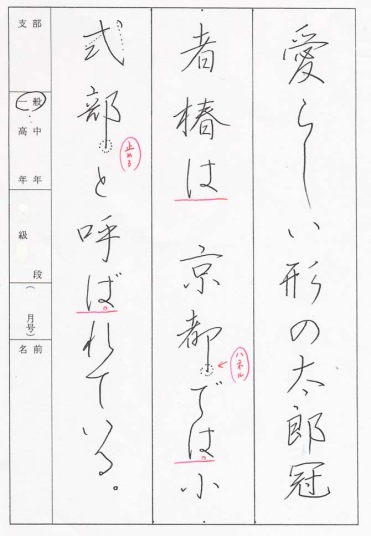 愛らしい形の太郎冠
者椿は京都では小
式部と呼ばれている。
ハネル
止める
支部
一般
高中
年年
級
段
(
月号)
名前